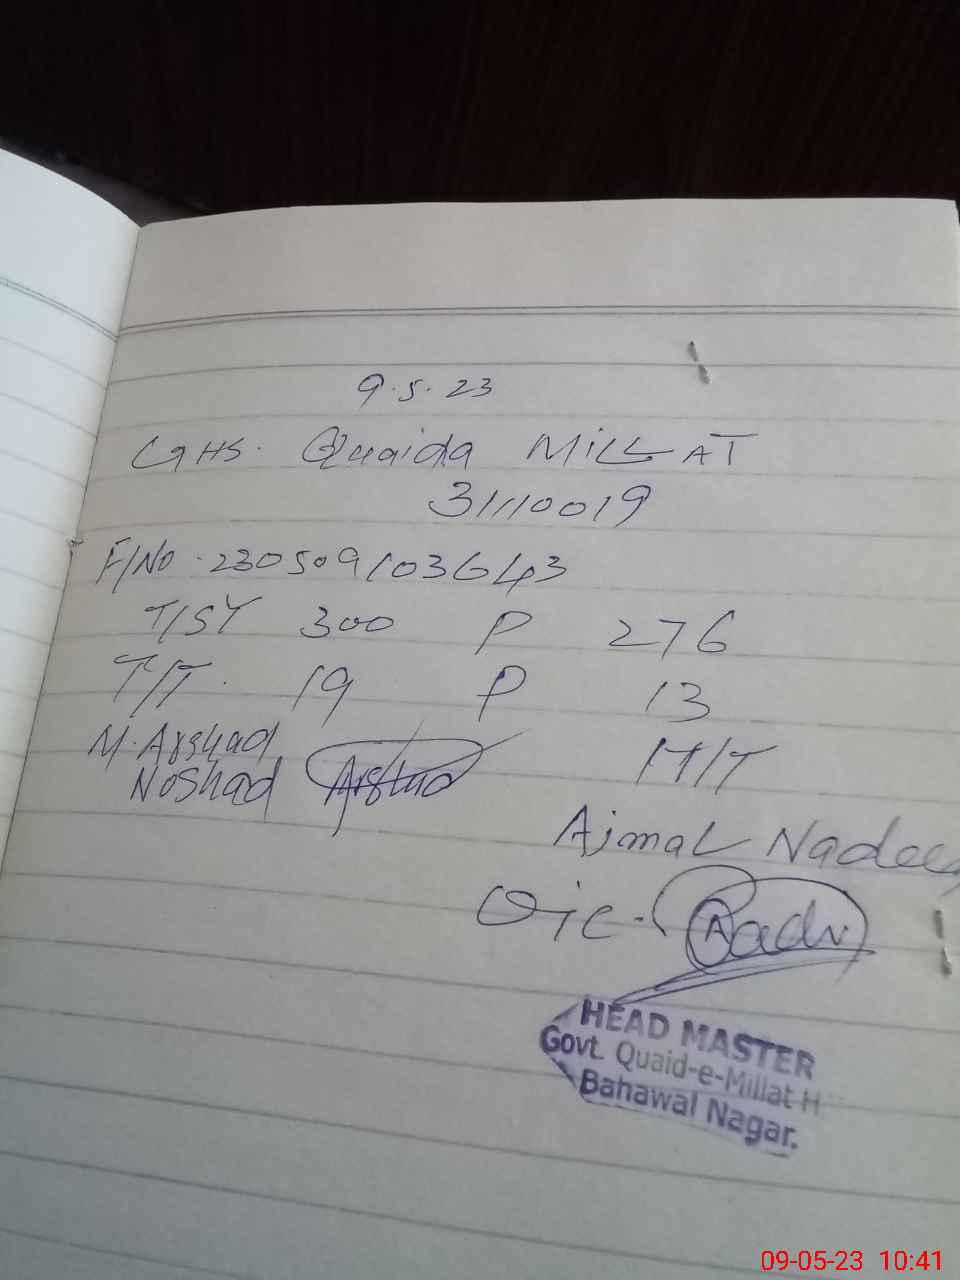 9.5.23
GHS. Quaida MILLAT
31110019
F/No. 230509103643
T/ST 300 P 276
T/T. 19 P 13
M. Arshad
Noshad Arshad
H/T
Ajmal Nadee
O/c.
HEAD MASTER
Govt. Quaid-e-Millat H
Bahawal Nagar.
09-05-23 10:41